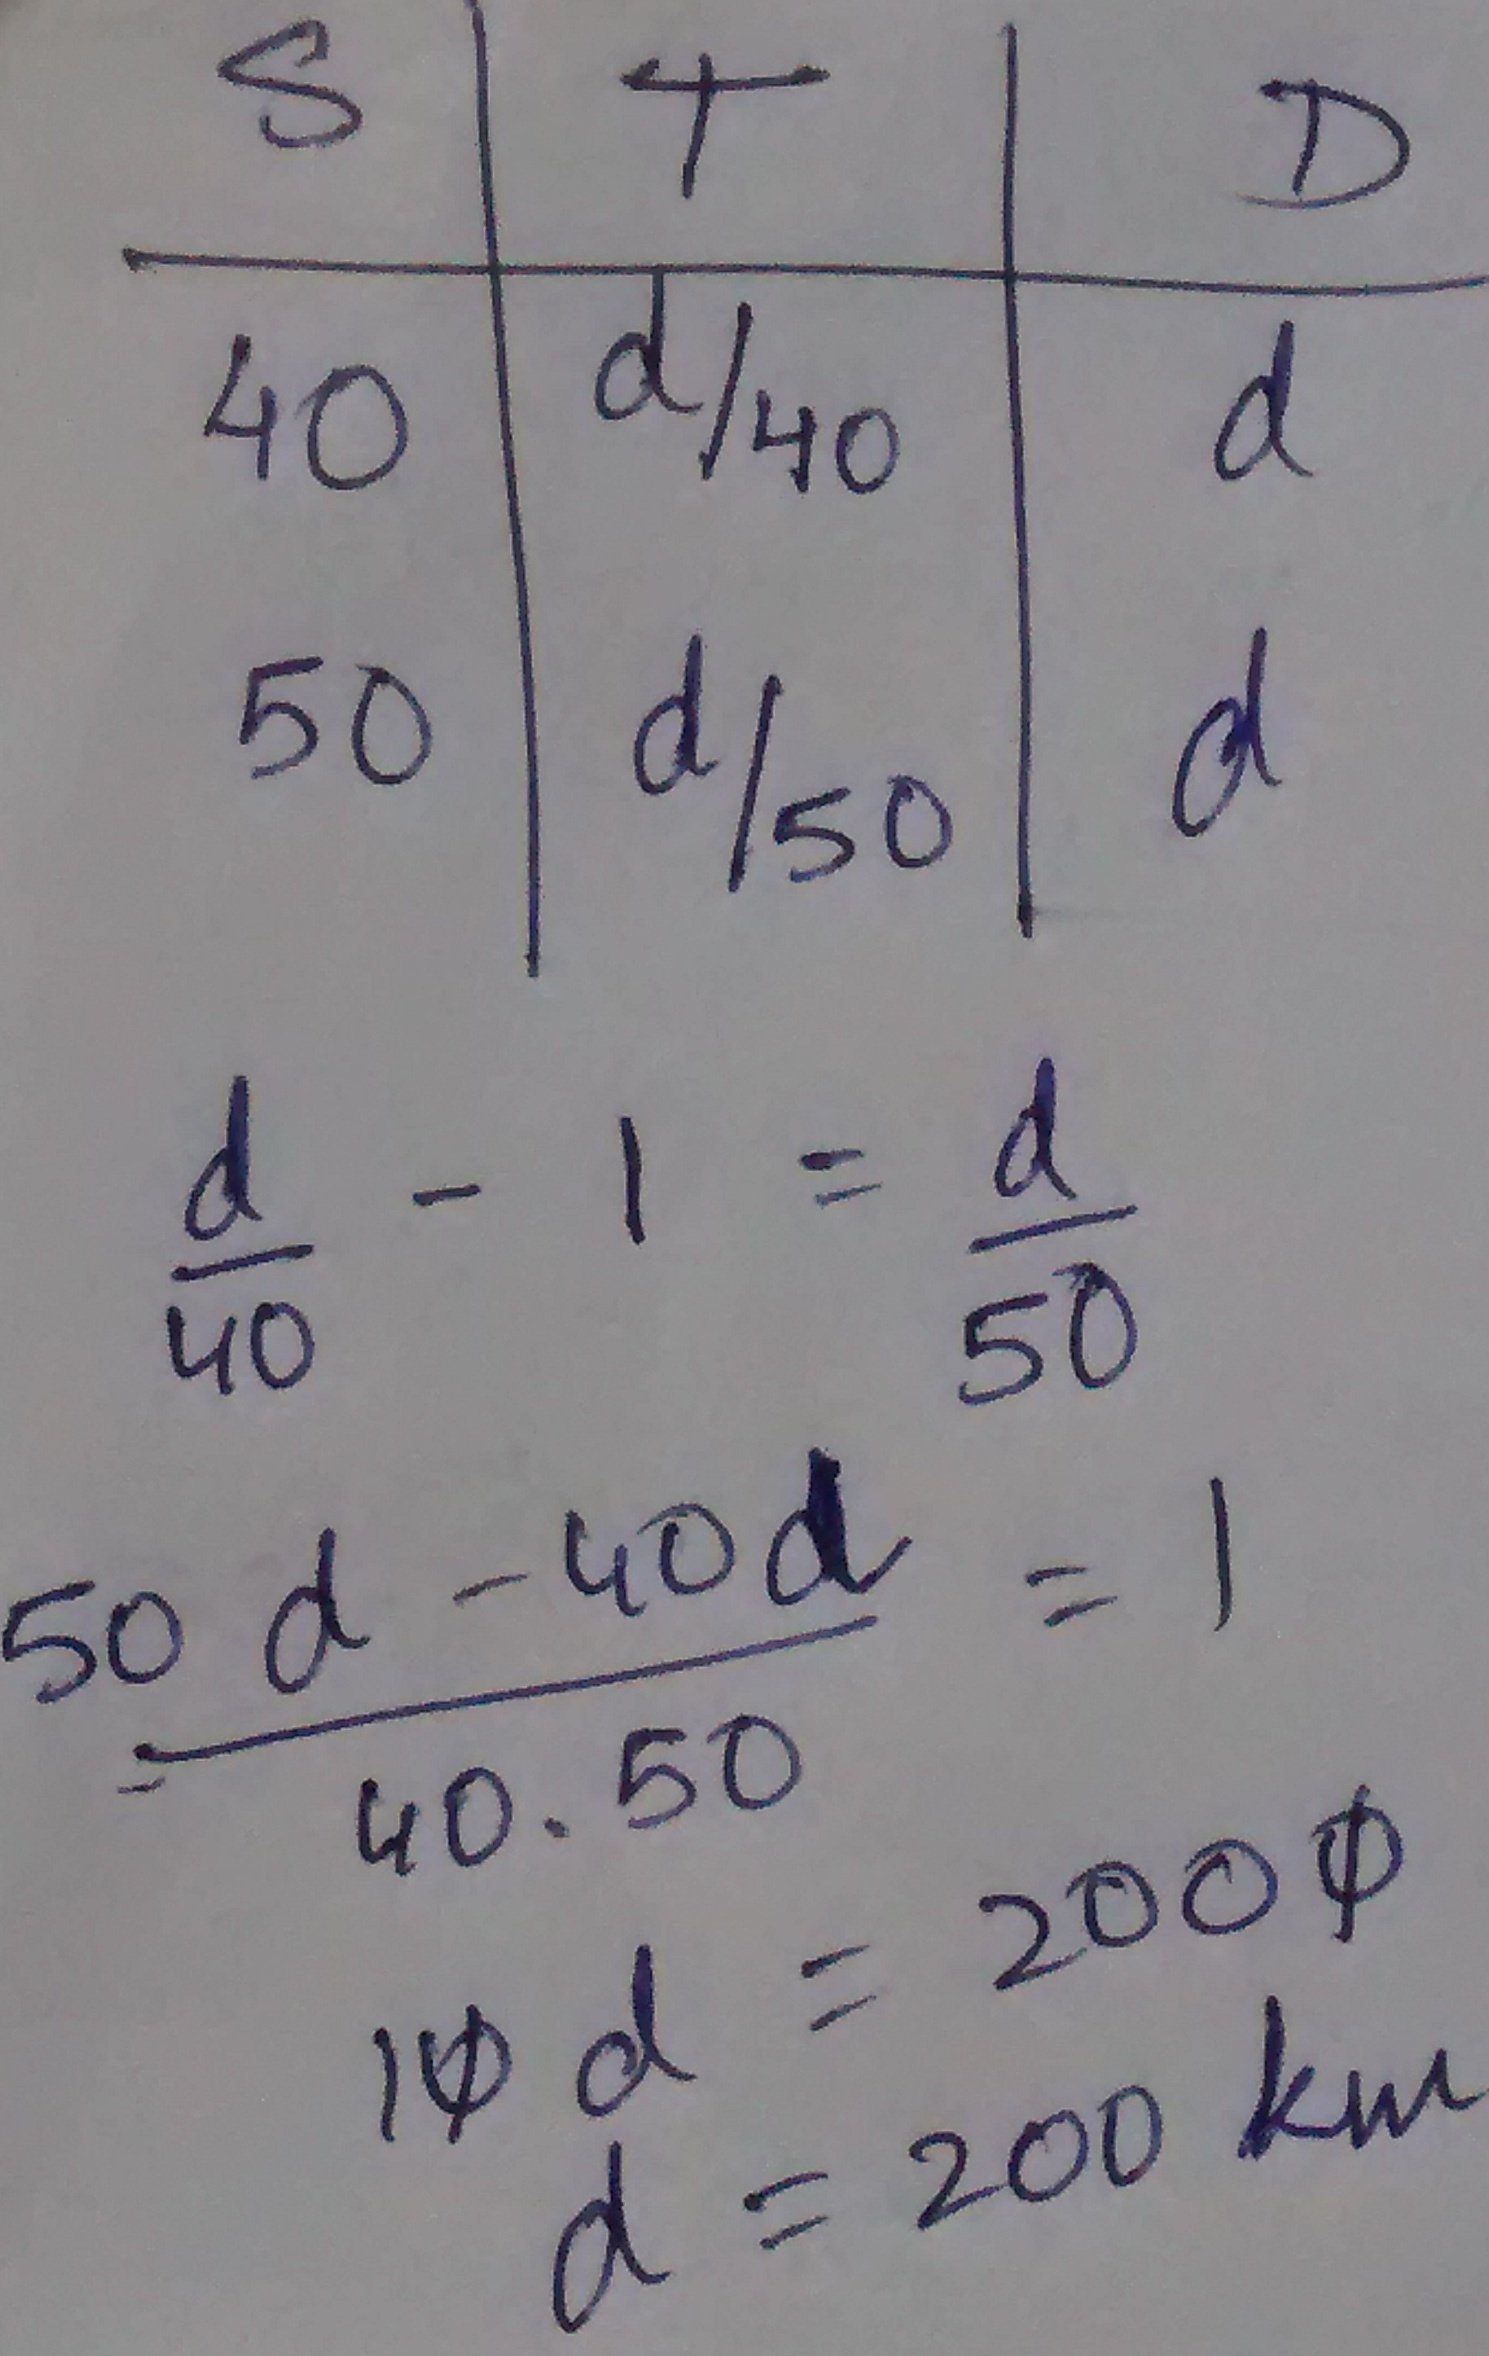 S T D
40 d/40 d
50 d/50 d
d/40 - 1 = d/50
50 d - 40d / 40.50 = 1
10 d = 2000
d = 200 km